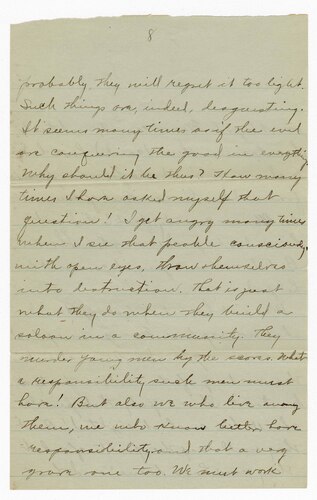 8
probably they will regret it too light.
Such things are, indeed, disgusting.
It seems many times as if the evil
are conquering the good in everything
Why should it be thus? How many
times I have asked myself that
question! I get angry many times
when I see that people consciously,
with open eyes, throw themselves
into destruction. That is just
what they do when they build a
saloon in a community. They
murder young men by the scores. What
a responsibility such men must
have! But also we who live among
them, we who know better, have
responsibility and that a very
grave one too. We must work